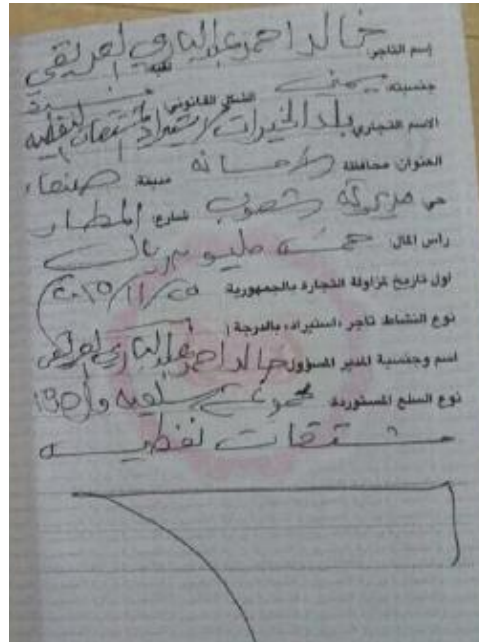 إسم التاجر: خالد احمد عبدالباري العريقي
جنسيته: يمني الشكل القانوني: فردية
الاسم التجاري: بلد الخيرات لاستيراد المشتقات النفطية
العنوان محافظة الامانة مدينة صنعاء
حي مديرية شعوب شارع: المطار
رأس المال: خمسة مليون ريال
اول تاريخ لمزاولة التجارة بالجمهورية
نوع النشاط تاجر، استيراد، بالدرجة ا
اسم وجنسية المدير المسؤول خالد احمد عبدالباري العريقي
نوع السلع المستوردة مجموعة سلعية واحدة
مشتقات نفطيه